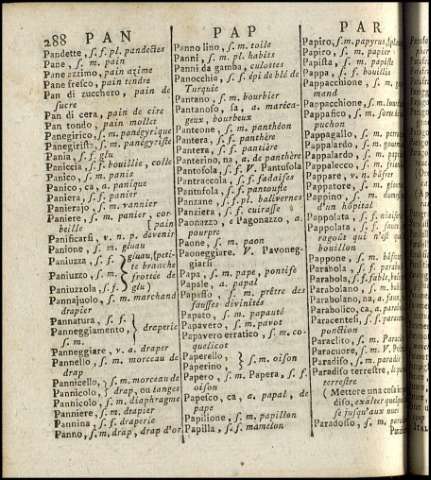 288 PAN PAP PAR
Pandette, s. f. pl. pandectes
Pane, s. m. pain
Pane azzimo, pain azime
Pane fresco, pain tendre
Pan di zucchero, pain de
sucre
Pan di cera, pain de cire
Pan tondo, pain mollet
Panegirico, s. m. panégyrique
Panegirista, s. m. panégyriste
Pania, s. f. glu
Paniccia, s. f. bouillie, colle
Panico, s. m. panis
Panico, ca, a. panique
Paniera, s. f. panier
Panierajo, s. m. vannier
Paniere, s. m. panier, cor-
beille [pain
Panificarsi, v. n. p. devenir
Panione, s. m. gluau
Paniuzza, s. f. gluau, (peti-
te branche
Paniuzzo, s. m. frottée de
Paniuzzola, s. f. glu)
Pannajuolo, s. m. marchand
drapier
Pannatura, s. f.
Panneggiamento, draperie
s. m.
Panneggiare, v. a. draper
Pannello, s. m. morceau de
drap
Pannicello, s. m. morceau de
Pannicolo, drap, ou langes
Pannicolo, s. m. diaphragme
Panniere, s. m. drapier
Pannina, s. f. draperie
Panno, s. m. drap, drap d'or
Panno lino, s. m. toile
Panni, s. m. pl. habits
Panni da gamba, culottes
Panocchia, s. f. épi de blé de
Turquie
Pantano, s. m. bourbier
Pantanoso, sa, a. maréca-
geux, bourbeux
Panteone, s. m. panthéon
Pantera, s. f. panthère
Pantera, s. f. pantière
Panterino, na, a. de panthère
Pantofola, s. f. V. Pantufola
Pantraccola, s. f. fadaises
Pantufola, s. f. pantoufle
Panzane, s. f. pl. balivernes
Panziera, s. f. cuirasse
Paonazzo e Pagonazzo, a.
pourpre
Paone, s. m. paon
Paoneggiare. V. Pavoneg-
giarsi
Papa, s. m. pape, pontife
Papale, a. papal
Papasso, s. m. prêtre des
fausses divinités
Papato, s. m. papauté
Papavero, s. m. pavot
Papavero erratico, s. m. co-
quelicot
Paperello, s. m. oison
Paperino,
Papero, s. m. Papera, s. f.
oison
Papesco, ca, a. papal, de
pape
Papilione, s. m. papillon
Papilla, s. f. mamelon
Papiro, s. m. papyrus,
Papiro, s. m. papier
Papista, s. m. papiste
Pappa, s. f. bouillie
Pappacchione, s. m.
mand
Pappacchione, s. m.
Pappafico, s. m.
puchon
Pappagallo, s. m.
Pappalardo, s. m.
Pappalardo, s. m.
Pappalecco, s. m.
Pappare, v. n. bâfrer
Pappatore, s. m.
Pappino, s. m.
d'un hôpital
Pappolata, s. f.
Pappolata, s. f.
ragoût qui n'est
bouillon
Pappone, s. m.
Parabola, s. f.
Parabola, s. f.
Parabolano, s. m.
Parabolano, na, a.
Parabolico, ca, a.
Paracentesi, s. f.
ponction
Paraclito, s. m.
Paracuore, s. m. V.
Paradiso, s. m.
Paradiso terrestre,
terrestre
(Mettere una cosa in
diso, exalter
se jusqu'aux nues
Paradosso, s. m.